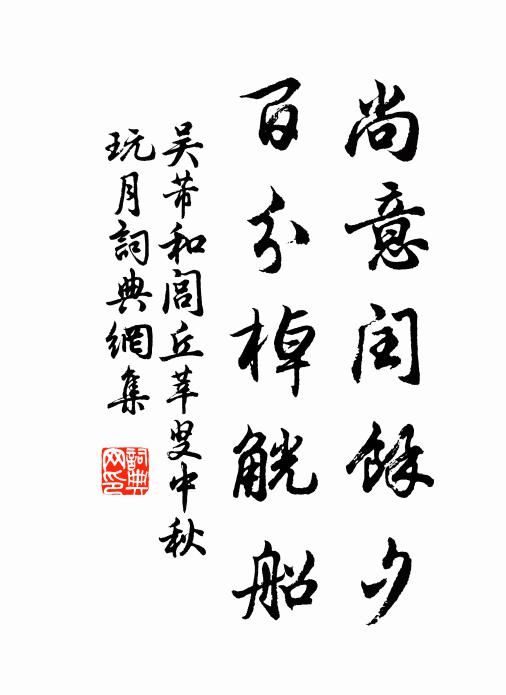 尚意閏餘夕
百分棹觥船
吴芾和閭丘莘叟中秋
玩月詞典網集
詞典网印